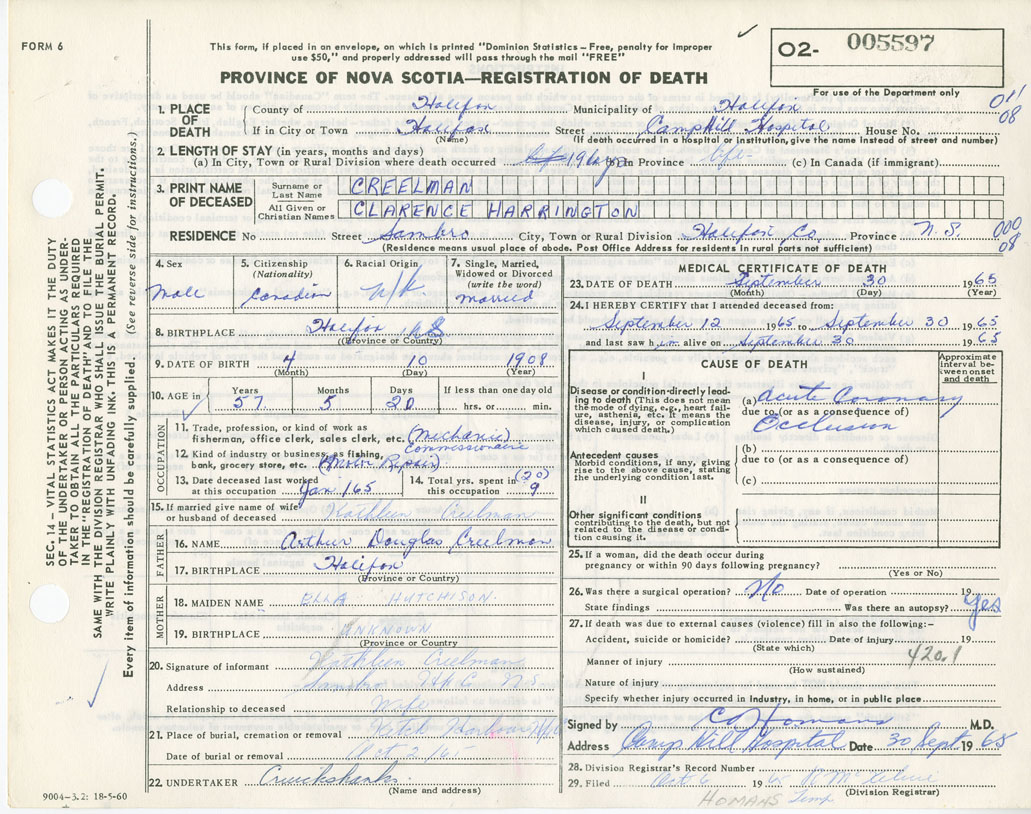 FORM 6
This form, if placed in an envelope, on which is printed "Dominion Statistics – Free, penalty for improper
use $50," and properly addressed will pass through the mail "FREE"
PROVINCE OF NOVA SCOTIA—REGISTRATION OF DEATH
O2- 005597
For use of the Department only
011
08
1. PLACE OF DEATH County of Halifax Municipality of Halifax
If in City or Town Halifax Street Camp Hill Hospital House No.
(Name) (If death occurred in a hospital or institution, give the name instead of street and number)
2. LENGTH OF STAY (in years, months and days)
(a) In City, Town or Rural Division where death occurred 19 (b) In Province life (c) In Canada (if immigrant)
3. PRINT NAME OF DECEASED Surname or Last Name CREELMAN
All Given or Christian Names CLARENCE HARRINGTON
RESIDENCE No Street Sambro City, Town or Rural Division Halifax Co. Province N.S.
000
08
(Residence means usual place of abode. Post Office Address for residents in rural parts not sufficient)
4. Sex Male
5. Citizenship (Nationality) Canadian
6. Racial Origin
7. Single, Married, Widowed or Divorced (write the word) Married
8. BIRTHPLACE Halifax
(Province or Country)
9. DATE OF BIRTH 4 10 1908
(Month) (Day) (Year)
10. AGE in Years 57 Months 5 Days 20 If less than one day old hrs. or min.
OCCUPATION
11. Trade, profession, or kind of work as
fisherman, office clerk, sales clerk, etc. (Mechanic)
Commissionaire
12. Kind of industry or business, as fishing,
bank, grocery store, etc. (Motor Repair)
13. Date deceased last worked at this occupation Jan/65
14. Total yrs. spent in this occupation (20) 9
15. If married give name of wife or husband of deceased Kathleen Creelman
FATHER
16. NAME Arthur Douglas Creelman
17. BIRTHPLACE Halifax
(Province or Country)
MOTHER
18. MAIDEN NAME ELLA HUTCHISON.
19. BIRTHPLACE UNKNOWN
(Province or Country
20. Signature of informant Kathleen Creelman
Address Sambro Hfx Co N.S.
Relationship to deceased Wife
21. Place of burial, cremation or removal Ketch Harbour
Date of burial or removal Oct 2/65
22. UNDERTAKER Cruikshanks.
(Name and address)
9004-3.2: 18-5-60
MEDICAL CERTIFICATE OF DEATH
23. DATE OF DEATH September 30 1965
(Month) (Day) (Year)
24. I HEREBY CERTIFY that I attended deceased from:
September 12 1965 to September 30 1965
and last saw him alive on September 30 1965
CAUSE OF DEATH
Approximate interval between onset and death
I
Disease or condition directly leading to death (This does not mean
the mode of dying, e.g., heart failure, asthenia, etc. It means the
disease, injury, or complication which caused death.)
(a) Acute Coronary
due to (or as a consequence of)
Occlusion
Antecedent causes
Morbid conditions, if any, giving rise to the above cause, stating
the underlying condition last.
(b)
due to (or as a consequence of)
(c)
II
Other significant conditions
contributing to the death, but not related to the disease or condition causing it
25. If a woman, did the death occur during
pregnancy or within 90 days following pregnancy?
(Yes or No)
26. Was there a surgical operation? No Date of operation 19
State findings Was there an autopsy? Yes
27. If death was due to external causes (violence) fill in also the following:–
Accident, suicide or homicide? Date of injury 19
(State which)
420.1
Manner of injury
(How sustained)
Nature of injury
Specify whether injury occurred in industry, in home, or in public place
Signed by C O Homans M.D.
Address Camp Hill Hospital Date 30 Sept 1965
28. Division Registrar's Record Number
29. Filed Oct 6 1965
(Division Registrar)
HOMANS Temp
SEC. 14 – VITAL STATISTICS ACT MAKES IT THE DUTY
OF THE UNDERTAKER OR PERSON ACTING AS UNDER-
TAKER TO OBTAIN ALL THE PARTICULARS REQUIRED
IN THE "REGISTRATION OF DEATH" AND TO FILE THE
SAME WITH THE DIVISION REGISTRAR WHO SHALL ISSUE THE BURIAL PERMIT.
WRITE PLAINLY WITH UNFADING INK. THIS IS A PERMANENT RECORD.
Every item of information should be carefully supplied. (See reverse side for instructions.)